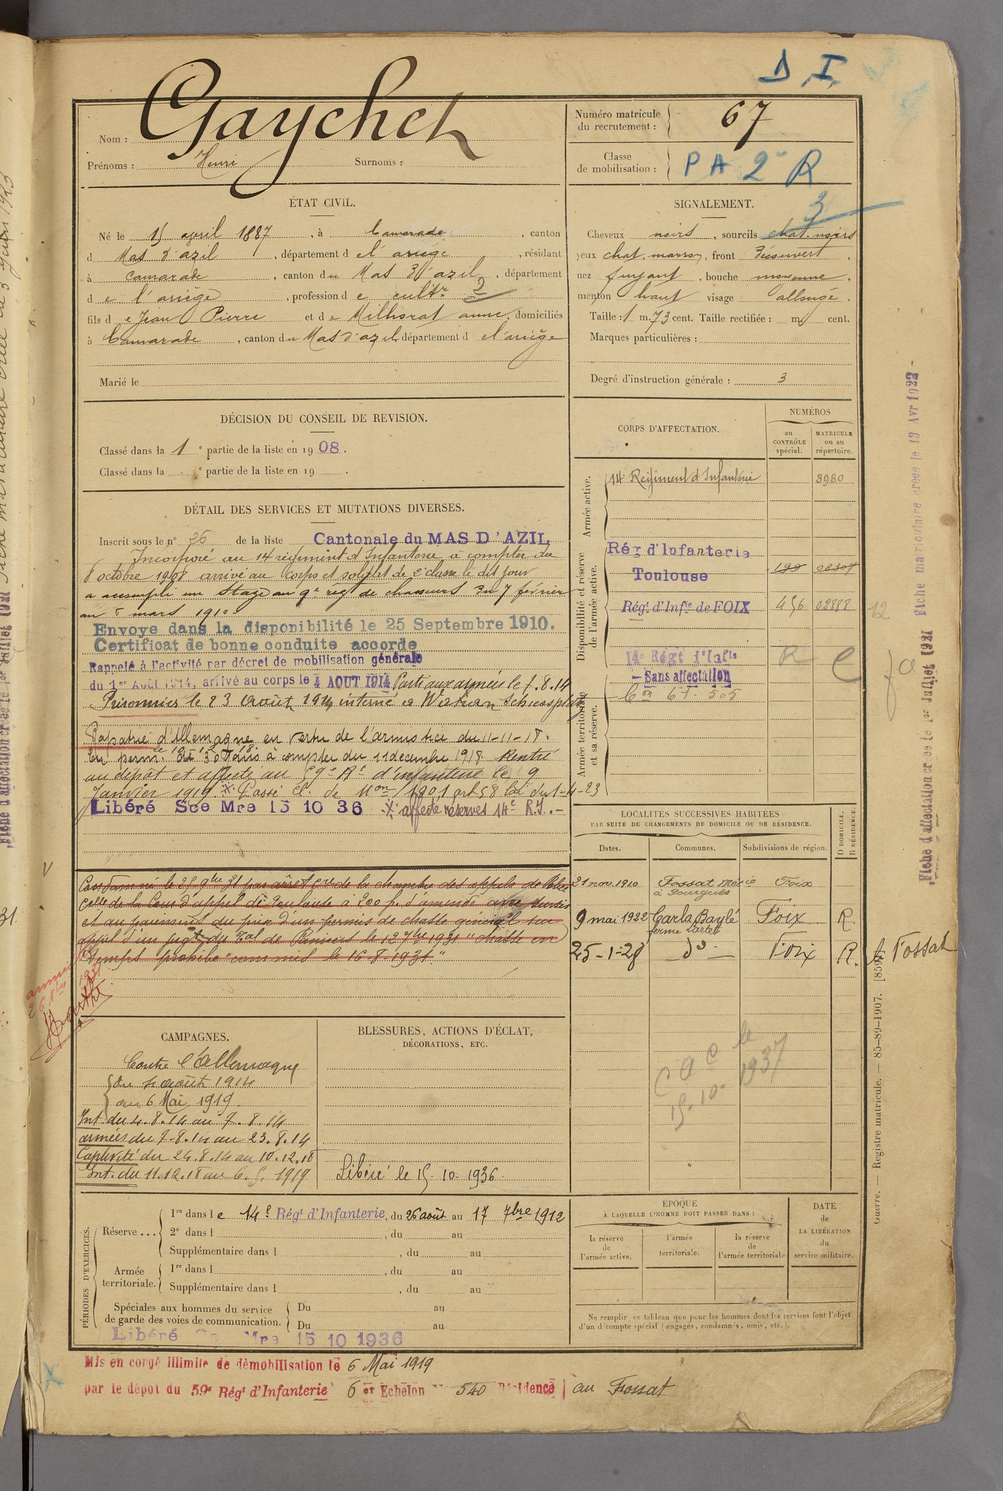 D. I.
Nom : Gaychet
Prénoms : Henri Surnoms :
Numéro matricule du recrutement : 67
Classe de mobilisation : PA 2e R
3
ÉTAT CIVIL.
Né le 15 avril 1887, à Camarade, canton
d Mas d'azil, département de l'ariège, résidant
à Camarade, canton du Mas d'azil, département
de l'ariège, profession de cultr 2
fils de Jean Pierre et de Milhorat anne, domiciliés
à Camarade, canton du Mas d'azil, département de l'ariège
Marié le
SIGNALEMENT.
Cheveux noirs, sourcils chat. noirs
yeux chat. marron, front découvert,
nez fuyant, bouche moyenne,
menton haut visage allongé.
Taille : 1 m. 73 cent. Taille rectifiée : m. cent.
Marques particulières :
Degré d'instruction générale : 3
DÉCISION DU CONSEIL DE REVISION.
Classé dans la 1e partie de la liste en 1908.
Classé dans la e partie de la liste en 19 .
DÉTAIL DES SERVICES ET MUTATIONS DIVERSES.
Inscrit sous le n° 36 de la liste Cantonale du MAS D'AZIL
Incorporé au 14 régiment d'Infanterie à compter du
8 octobre 1908 arrivé au corps et soldat de 2e classe le dit jour
a accompli un stage au 9e régt de chasseurs du 7 février
au 8 mars 1910
Envoyé dans la disponibilité le 25 Septembre 1910.
Certificat de bonne conduite accordé
Rappelé à l'activité par décret de mobilisation générale
du 1er Août 1914, arrivé au corps le 4 AOUT 1914 Parti aux armées le 7.8.14
Prisonnier le 23 août 1914 interné à
Rapatrié d'Allemagne en vertu de l'armistice du 11-11-18.
En perm. de 30 jours à compter du 11 décembre 1918 Rentré
au dépôt et affecté au 59e Rt d'infanterie le 9
Janvier 1919 Passé Cl. de Mon 1901 art 58 loi du 1-4-23
Libéré Sce Mre 15 10 36 affecté réserves 14e R.I.
Condamné le 25 9bre 31 par arrêt de la chambre des appels de Police
Colle de la Cour d'appel de Toulouse à 200 f. d'amende avec sursis
et au paiement du prix d'un permis de chasse général sur
appel d'un jugt du Bal de Pamiers le 12 7bre 1931 "chasse en
temps prohibé" commis le 16-8-1931."
CORPS D'AFFECTATION.
NUMÉROS
au CONTRÔLE spécial.
MATRICULE ou au répertoire.
Armée active.
14 Régiment d'Infanterie 8980
Disponibilité et réserve de l'armée active.
Rég. d'Infanterie
Toulouse
Régt. d'Infie de FOIX 456 02888
12
14e Régt d'Infie
Sans affectation
Armée territoriale et sa réserve.
LOCALITÉS SUCCESSIVES HABITÉES
PAR SUITE DE CHANGEMENTS DE DOMICILE OU DE RÉSIDENCE.
Dates. Communes. Subdivisions de région. D DOMICILE. R RÉSIDENCE.
21 nov. 1910 Fossat Foix
9 mai 1922 Carla Bayle Foix R
25-1-28 do Foix R. le Fossat
C A C le
15.10.1937
CAMPAGNES.
Contre l'Allemagne
du 4 août 1914
au 6 Mai 1919.
Int. du 4.8.14 au 7.8.14
armées du 7.8.14 au 23.8.14
Captivité du 24.8.14 au 10.12.18
Int. du 11.12.18 au 6.5.1919
BLESSURES, ACTIONS D'ÉCLAT,
DÉCORATIONS, ETC.
Libéré le 15.10.1936
PÉRIODES D'EXERCICES.
Réserve...
1re dans le 14e Régt d'Infanterie, du 26 août au 17 7bre 1912
2e dans l , du au
Supplémentaire dans l , du au
Armée territoriale.
1re dans l , du au
Supplémentaire dans l , du au
Spéciales aux hommes du service de garde des voies de communication.
Du au
Du au
Libéré Sce Mre 15 10 1936
ÉPOQUE
À LAQUELLE L'HOMME DOIT PASSER DANS :
la réserve de l'armée active.
l'armée territoriale.
la réserve de l'armée territoriale
DATE de LA LIBÉRATION du service militaire.
Ne remplir ce tableau que pour les hommes dont les services font l'objet
d'un décompte spécial (engagés, condamnés, omis, etc.).
Mis en congé illimité de démobilisation le 6 Mai 1919
par le dépôt du 59e Régt d'Infanterie 6e Echelon n° 540 Résidence au Fossat
Guerre. — Registre matricule. — 85-89-1907. [859]
Fiche matriculaire créée le 13 Avr 1922
Fiche d'affectation créée le 1er Juillet 1921